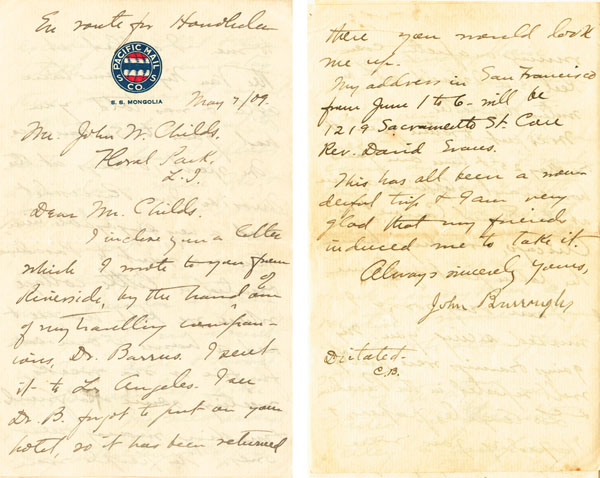 En route for Honolulu
PACIFIC MAIL
S S
CO.
S. S. MONGOLIA
May 7/09.
Mr John W. Childs.
Floral Park.
L. I.
Dear Mr. Childs.
I inclose you a letter
which I wrote to you from
Riverside, by the hand of one
of my travelling compan-
ions, Dr. Barrus. I sent
it to Los Angeles.
Dr. B. forgot to put on your
hotel, so it has been returned
there you would look
me up.
My address in San Francisco
from June 1 to 6 - will be
1219 Sacrametto St. Care
Rev. David Evans.
This has all been a won-
derful trip & I am very
glad that my friends
induced me to take it.
Always sincerely Yours,
John Burroughs
Dictated-
C.B.